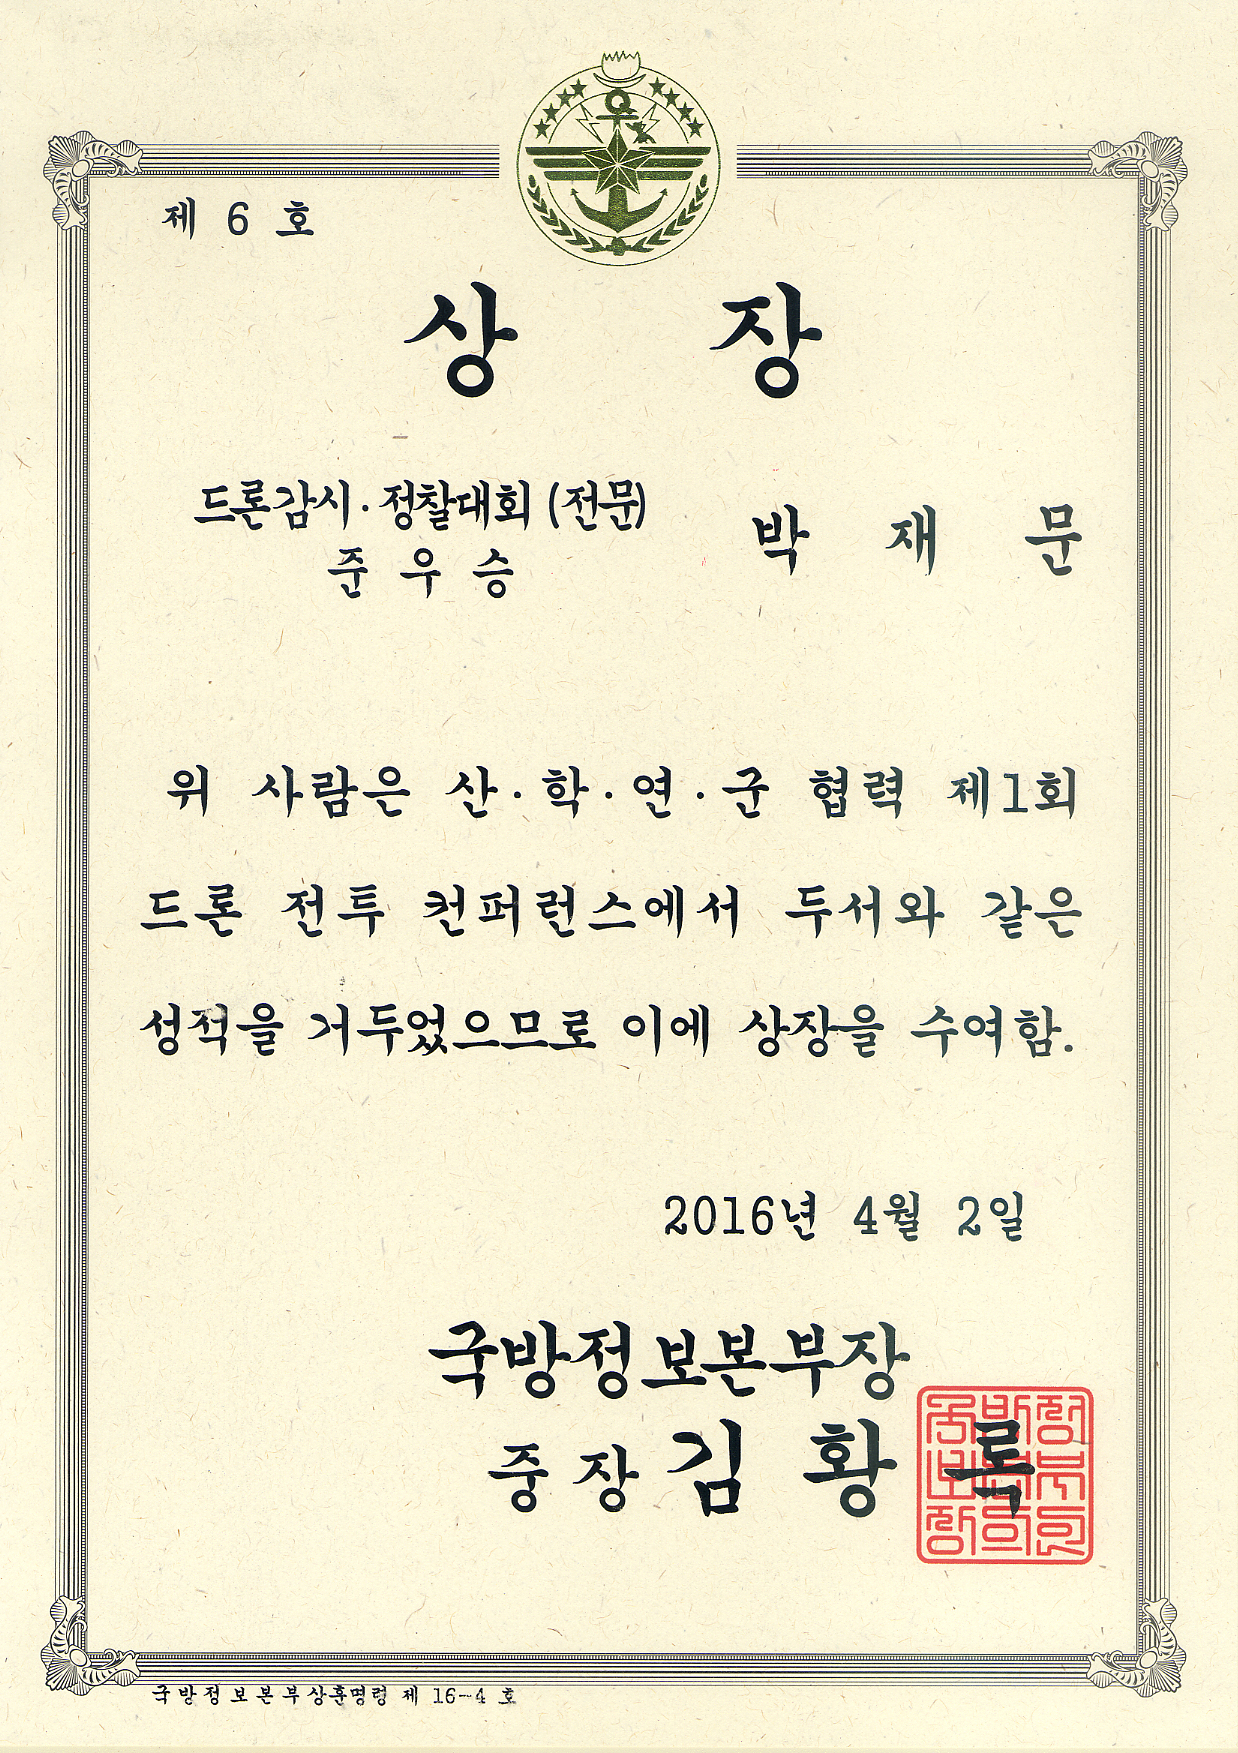 제 6 호
상 장
드론감시·정찰대회(전문)
준 우 승
박 재 문
위 사람은 산·학·연·군 협력 제1회
드론 전투 컨퍼런스에서 두서와 같은
성적을 거두었으므로 이에 상장을 수여함.
2016년 4월 2일
국방정보본부장
중장 김 황 록
국방정보본부상훈명령 제 16-4 호